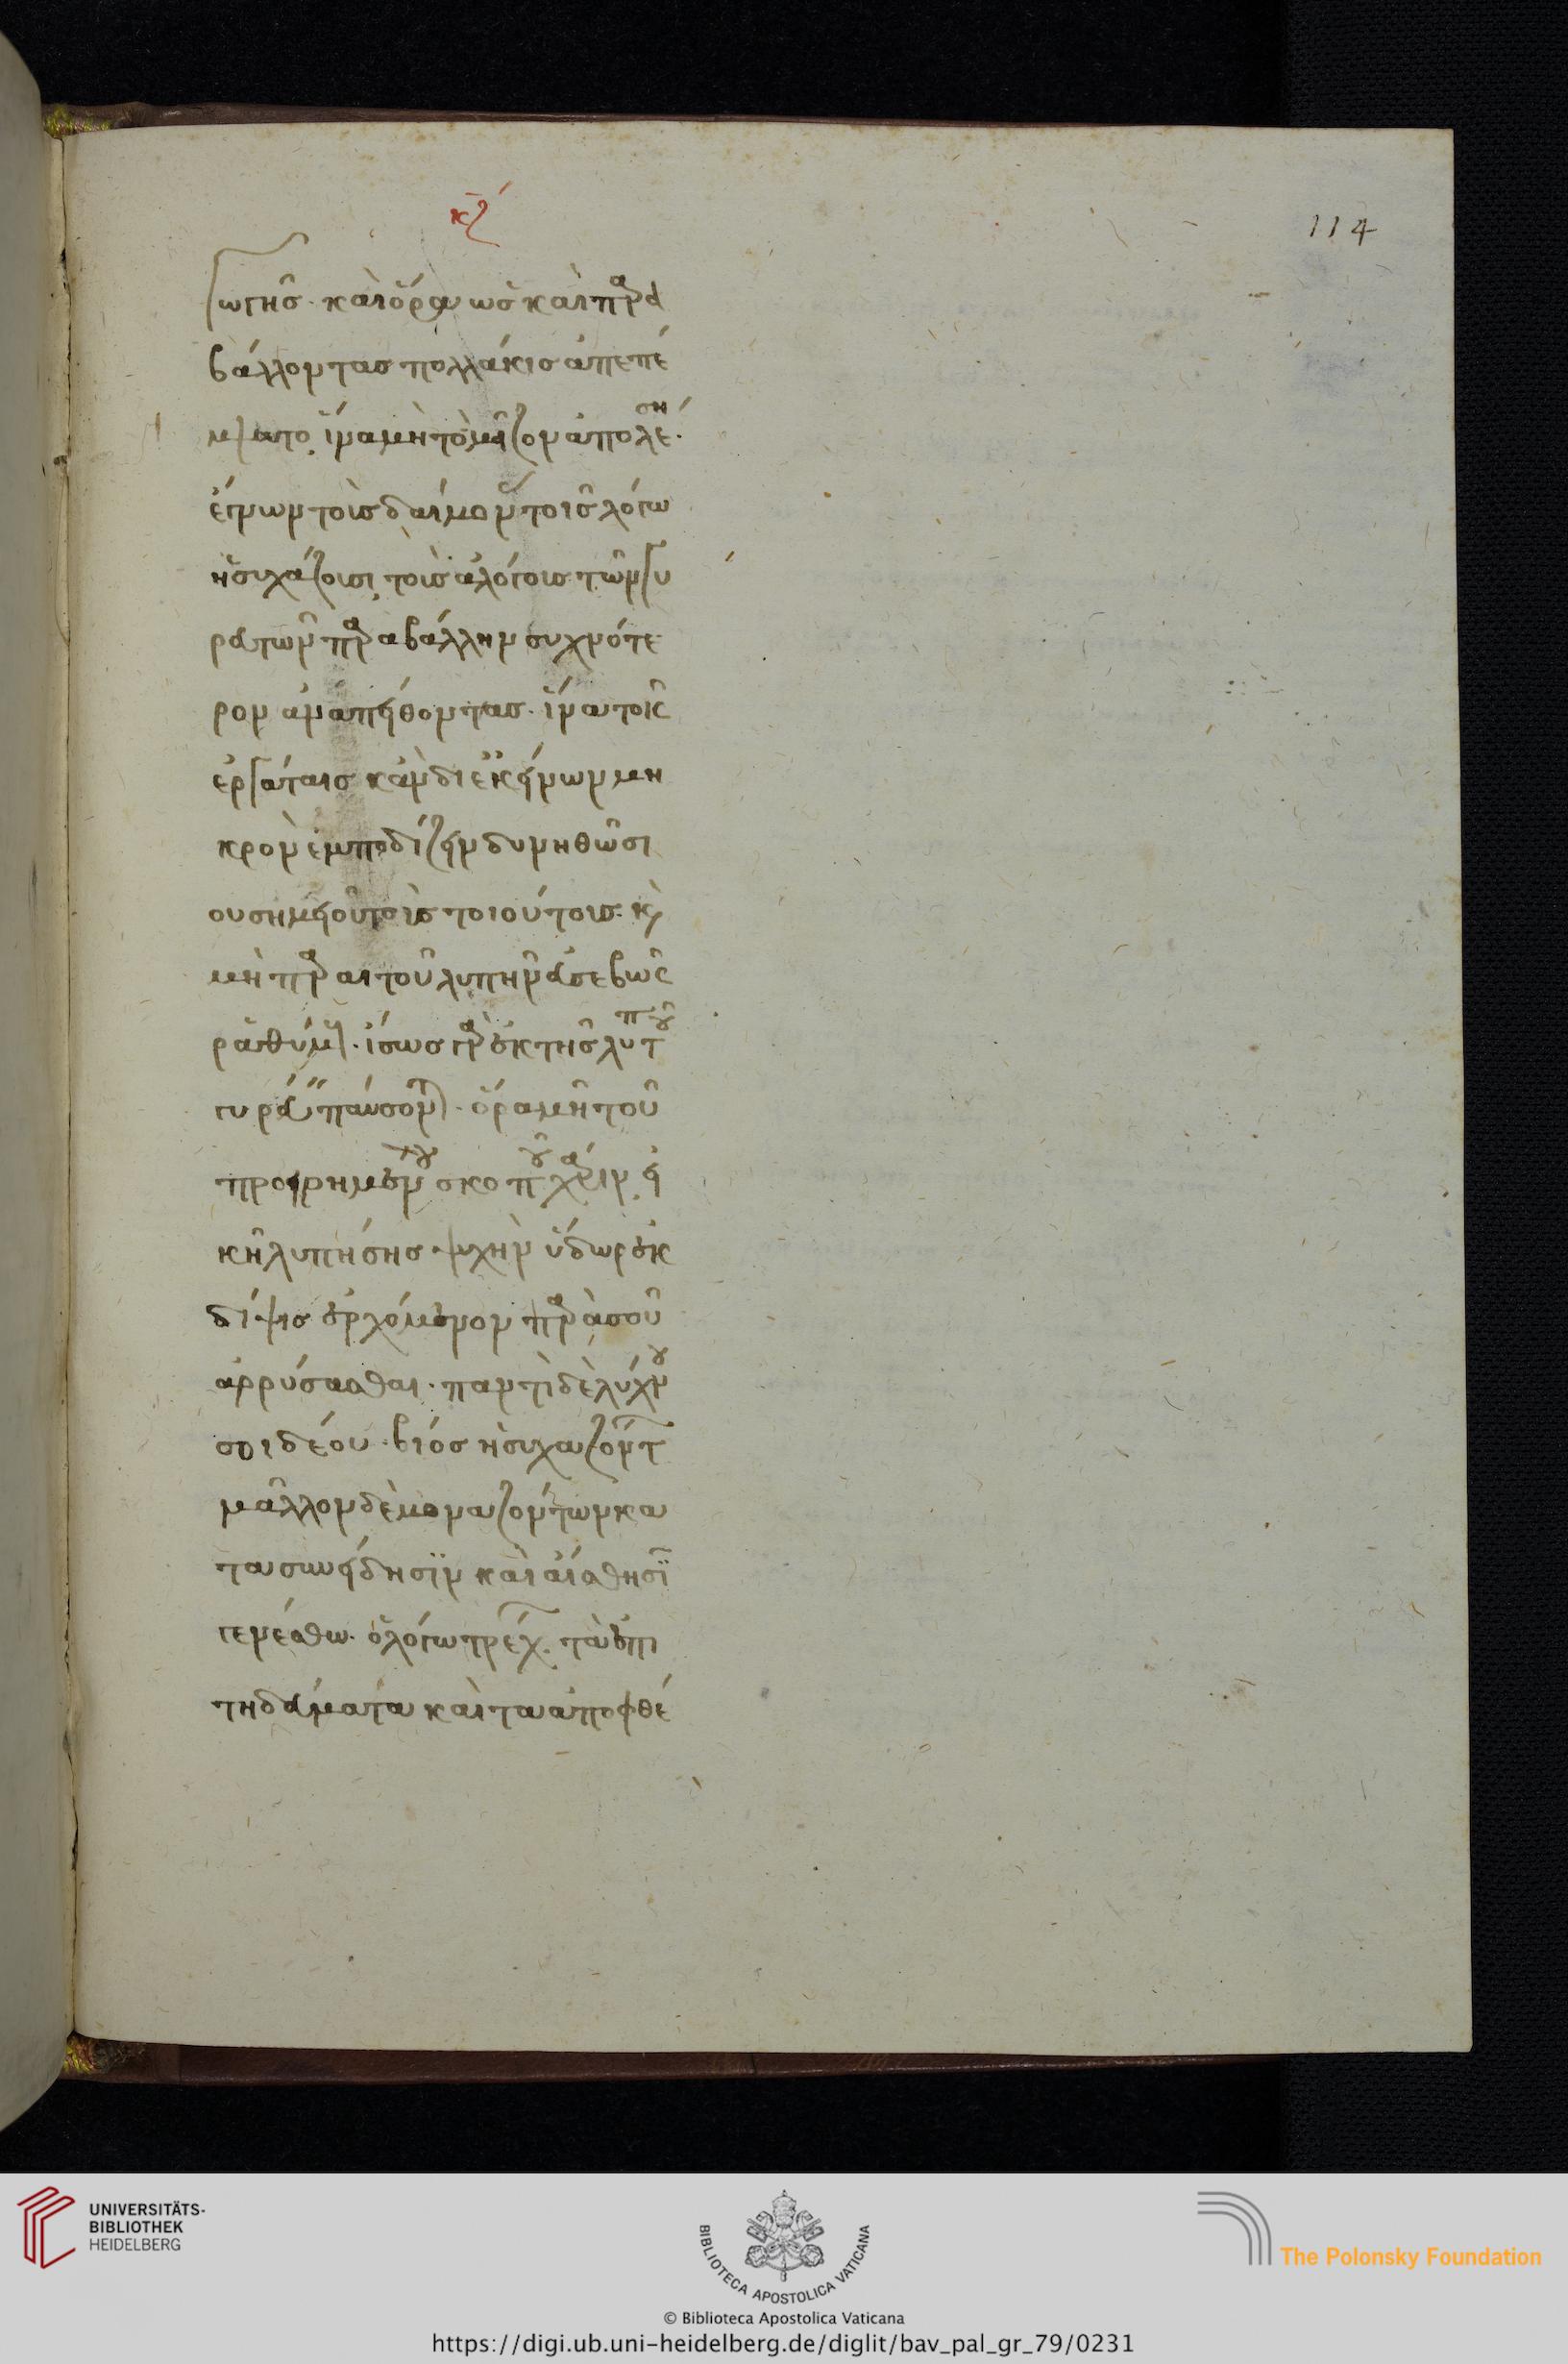 κζ
114
γωγῆς· καὶ ὅρα ὡς καὶ παρα
βάλλοντας πολλάκις ἀπεπέ
μψατο, ἵνα μὴ τὸ μεῖζον ἀπολέση·
ἔγνων τοὺς δαίμονας τοῖς λόγω
ἡσυχάζουσι, τοὺς ἀλόγους τῶν γυ
ρευτῶν παραβάλλην συχνότε
ρον ἀναπείθοντας· ἵνα τοῖς
ἐργάταις κἂν δι ἐκείνων μη
κρὸν ἐμποδίζειν δυνηθῶσι
σημειοῦ τοὺς τοιούτους· καὶ
μὴ παραιτοῦ λυπῆν εὐσεβῶς
ῥαθύμους· ἴσως γὰρ ἐκ τῆς λύπης τοῦ
γυρεύειν παύσονται· ὅρα μὴ τοῦ
προειρημένου σκοποῦ χάριν, εἰ
κῆ λυπήσης ψυχὴν ὕδωρ ἐκ
δίψης ἐρχόμενον παρὰ σοῦ
ἀρρύσασθαι· παντὶ δὲ λύχνου
σοι δέον· βίος ἡσυχαζόντων
μᾶλλον δὲ μοναζόντων κα
τὰ συνείδησϊν καὶ αἴσθησϊν
γενέσθω· ὁ λόγω τρέχων τὰ ἐπι
τηδεύματα καὶ τὰ ἀποφθέ
UNIVERSITÄTS-
BIBLIOTHEK
HEIDELBERG
BIBLIOTECA APOSTOLICA VATICANA
The Polonsky Foundation
© Biblioteca Apostolica Vaticana
https://digi.ub.uni-heidelberg.de/diglit/bav_pal_gr_79/0231